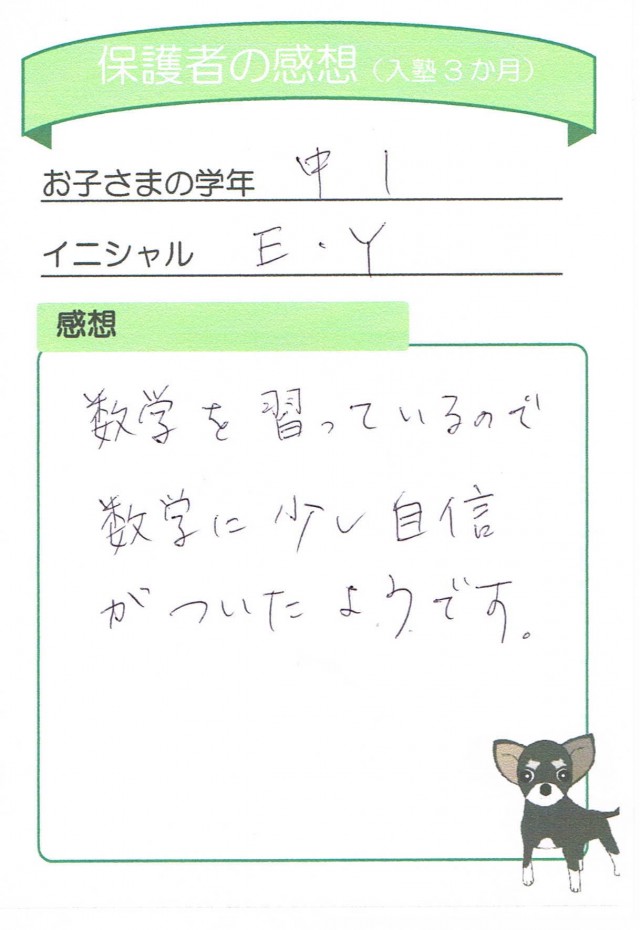 保護者の感想（入塾3か月）
お子さまの学年 中1
イニシャル E・Y
感想
数学を習っているので
数学に少し自信
がついたようです。